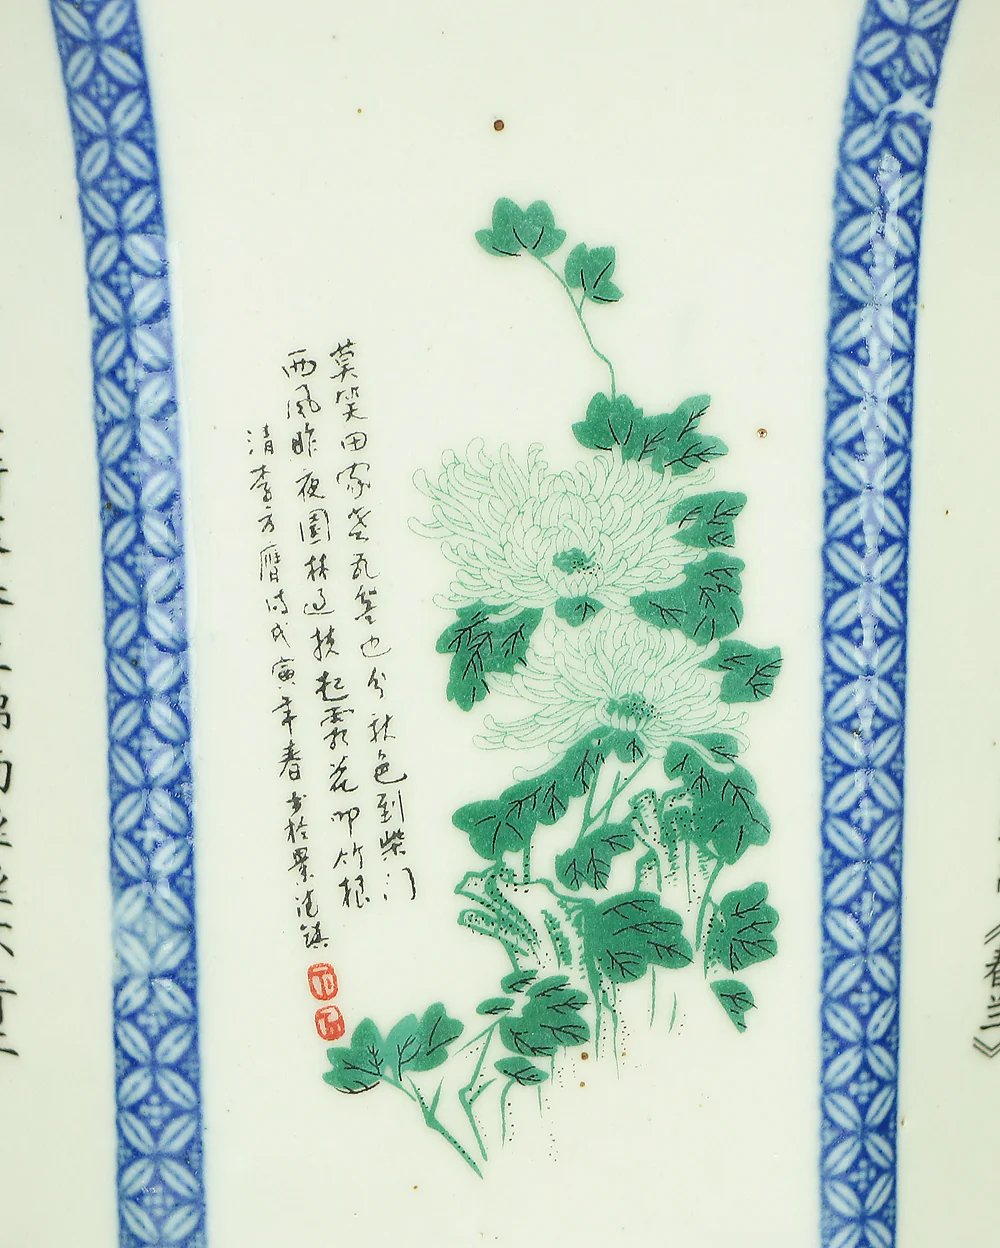 莫笑田家老瓦盆也分秋色到柴门
西风昨夜園林过扶起霜花叩竹根
清李方膺诗戊寅年春书於景德镇
《春兰》